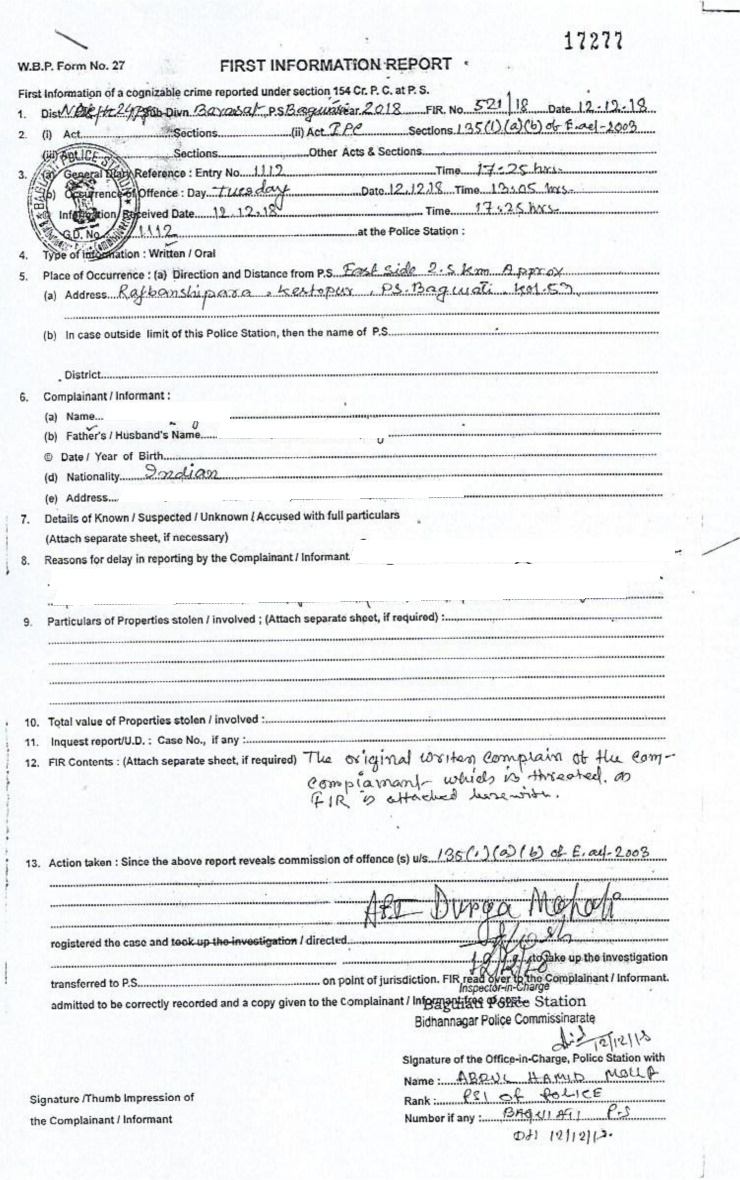 17277
W.B.P. Form No. 27 FIRST INFORMATION REPORT
First Information of a cognizable crime reported under section 154 Cr. P. C. at P. S.
1. Dist North 24 Pgs Sub-Divn. Barasat P.S Baguiati Year 2018 FIR. No. 521/18 Date 12.12.18
2. (i) Act Sections (ii) Act IPC Sections 135(1)(a)(b) of E.act-2003
(iii) Sections Other Acts & Sections
3. (a) General Diary Reference : Entry No. 1112 Time 17-25 hrs.
(b) Occurrence of Offence : Day Tuesday Date 12.12.18 Time 13:05 hrs.
© Information Received Date 12.12.18 Time 17:25 hrs.
G.D. No. 1112 at the Police Station :
4. Type of information : Written / Oral
5. Place of Occurrence : (a) Direction and Distance from P.S. East side 2.5 km Approx
(a) Address Rajbanshipara, Kestopur, PS. Baguiati, Kol.59
(b) In case outside limit of this Police Station, then the name of P.S.
District
6. Complainant / Informant :
(a) Name
(b) Father's / Husband's Name
© Date / Year of Birth
(d) Nationality Indian
(e) Address
7. Details of Known / Suspected / Unknown / Accused with full particulars
(Attach separate sheet, if necessary)
8. Reasons for delay in reporting by the Complainant / Informant
9. Particulars of Properties stolen / involved ; (Attach separate sheet, if required) :
10. Total value of Properties stolen / involved :
11. Inquest report/U.D. : Case No., if any :
12. FIR Contents : (Attach separate sheet, if required) The original writen complain of the com-
complamant which is threated as
FIR is attached herewith.
13. Action taken : Since the above report reveals commission of offence (s) u/s. 135(1)(a)(b) of E.act-2003
Durga
registered the case and took up the investigation / directed
12/12/18 to take up the investigation
transferred to P.S. on point of jurisdiction. FIR read over to the Complainant / Informant.
Inspector-in-Charge
admitted to be correctly recorded and a copy given to the Complainant / Informant free of cost.
Baguiati Police Station
Bidhannagar Police Commissinarate
12/12/18
Signature of the Office-in-Charge, Police Station with
Name : ABDUL HAMID MOLLA
Signature /Thumb Impression of Rank : PSI OF POLICE
the Complainant / Informant Number if any : BAGUIATI P.S
12/12/18.